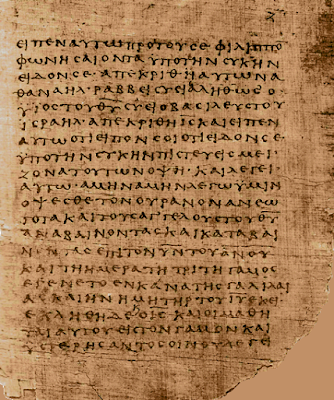 ΕΙΠΕΝΑΥΤΩΠΡΟΤΟΥϹΕΦΙΛΙΠΠΟ
ΦΩΝΗϹΑΙΟΝΤΑΥΠΟΤΗΝϹΥΚΗΝ
ΕΙΔΟΝϹΕ·ΑΠΕΚΡΙΘΗΑΥΤΩΝΑ
ΘΑΝΑΗΛ·ΡΑΒΒΕΙϹΥΕΙΑΛΗΘΩϹΟ
ΥΙΟϹΤΟΥΘ̅Υ̅ϹΥΕΙΟΒΑϹΙΛΕΥϹΤΟΥ
ΙϹΡΑΗΛ·ΑΠΕΚΡΙΘΗΙ̅Ϲ̅ΚΑΙΕΙΠΕΝ
ΑΥΤΩΟΤΙΕΙΠΟΝϹΟΙΟΤΙΕΙΔΟΝϹΕ·
ΥΠΟΤΗΝϹΥΚΗΝΠΙϹΤΕΥΕΙϹΜΕΙ
ΖΟΝΑΤΟΥΤΩΝΟΨΗ·ΚΑΙΛΕΓΕΙ
ΑΥΤΩ·ΑΜΗΝΑΜΗΝΛΕΓΩΥΜΙΝ
ΟΨΕϹΘΕΤΟΝΟΥΡΑΝΟΝΑΝΕΩ
ΓΟΤΑΚΑΙΤΟΥϹΑΓΓΕΛΟΥϹΤΟΥΘ̅Υ̅
ΑΝΑΒΑΙΝΟΝΤΑϹΚΑΙΚΑΤΑΒΑΙ
ΝΟΝΤΑϹΕΠΙΤΟΝΥ̅Ν̅ΤΟΥΑ̅Ν̅Ο̅Υ̅
ΚΑΙΤΗΗΜΕΡΑΤΗΤΡΙΤΗΓΑΜΟϹ
ΕΓΕΝΕΤΟΕΝΚΑΝΑΤΗϹΓΑΛΙΛΑΙ
ΑϹΚΑΙΗΝΗΜΗΤΗΡΤΟΥΙ̅Υ̅ΕΚΕΙ·
ΕΚΛΗΘΗΔΕΟΙ̅Ϲ̅ΚΑΙΟΙΜΑΘΗ
ΤΑΙΑΥΤΟΥΕΙϹΤΟΝΓΑΜΟΝΚΑΙ
ΥϹΤΕΡΗϹΑΝΤΟϹΟΙΝΟΥΛΕΓΕΙ